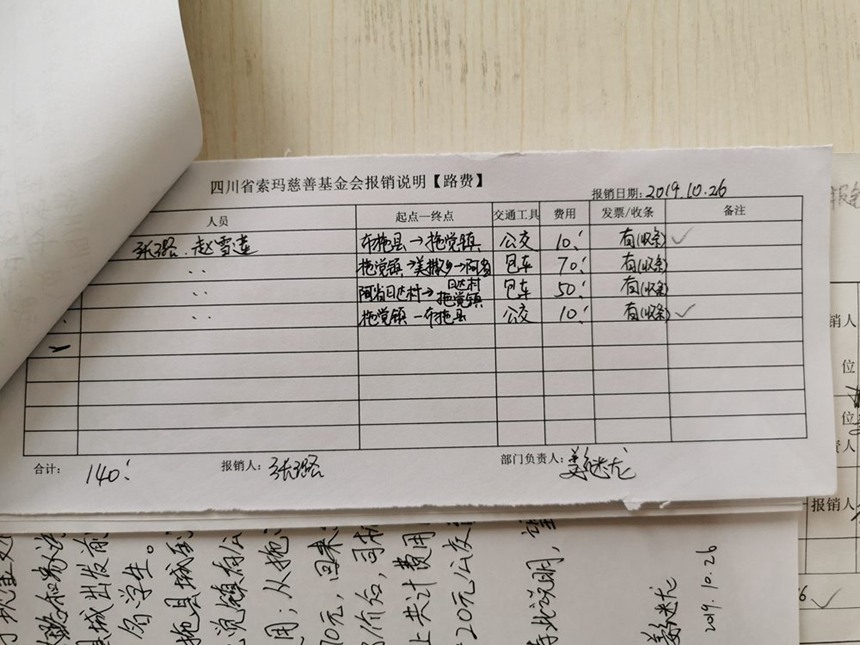 四川省索玛慈善基金会报销说明【路费】
报销日期: 2019.10.26
人员 起点—终点 交通工具 费用 发票/收条 备注
张璐、赵雪莲 布拖县→拖觉镇 公交 10 有(收条) ✓
〃 拖觉镇→美撒乡→阿省 包车 70 有(收条)
〃 阿省日达村→日达村拖觉镇 包车 50 有(收条)
〃 拖觉镇—布拖县 公交 10 有(收条) ✓
合计: 140 报销人: 张璐 部门负责人:
县城出发前
名学生。
拖县城到
觉镇有公
用；从拖
70元，回来
上共计费用
20元公交
2019.10.26
销人
位
位
报销人